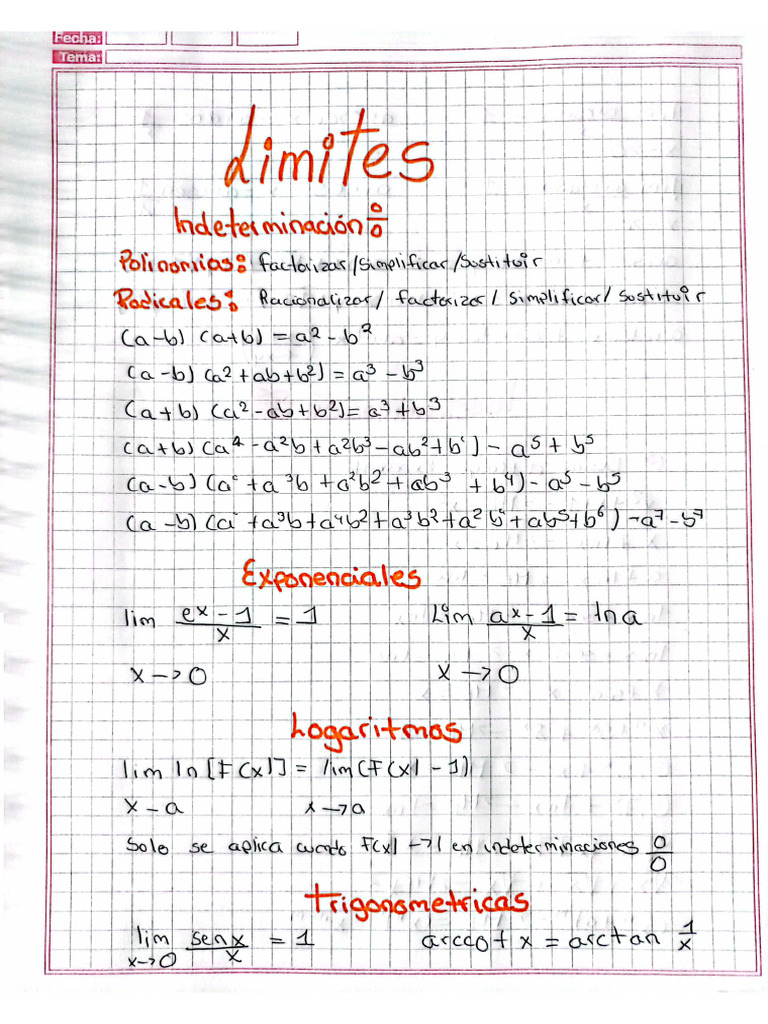 Fecha:
Tema:
Limites
Indeterminación 0/0
Polinomios: factorizar/simplificar/sustituir
Radicales: Racionalizar/ factorizar/ simplificar/ sustituir
(a-b) (a+b) = a² - b²
(a-b) (a² + ab + b²) = a³ - b³
(a+b) (a² - ab + b²) = a³ + b³
(a+b) (a⁴ - a²b + a²b³ - ab² + b⁴) - a⁵ + b⁵
(a-b) (a⁴ + a³b + a²b² + ab³ + b⁴) - a⁵ - b⁵
(a-b) (a + a³b + a⁴b² + a³b² + a²b + ab⁵ + b⁶) - a⁷ - b⁷
Exponenciales
lim eˣ-1/x = 1 Lim aˣ-1/x = ln a
x → 0 x → 0
Logaritmos
lim ln [F(x)] = lim (F(x) - 1)
x - a x → a
Solo se aplica cuando F(x) → 1 en indeterminaciones 0/0
trigonometricas
lim sen x/x = 1 arccot x = arctan 1/x
x→0